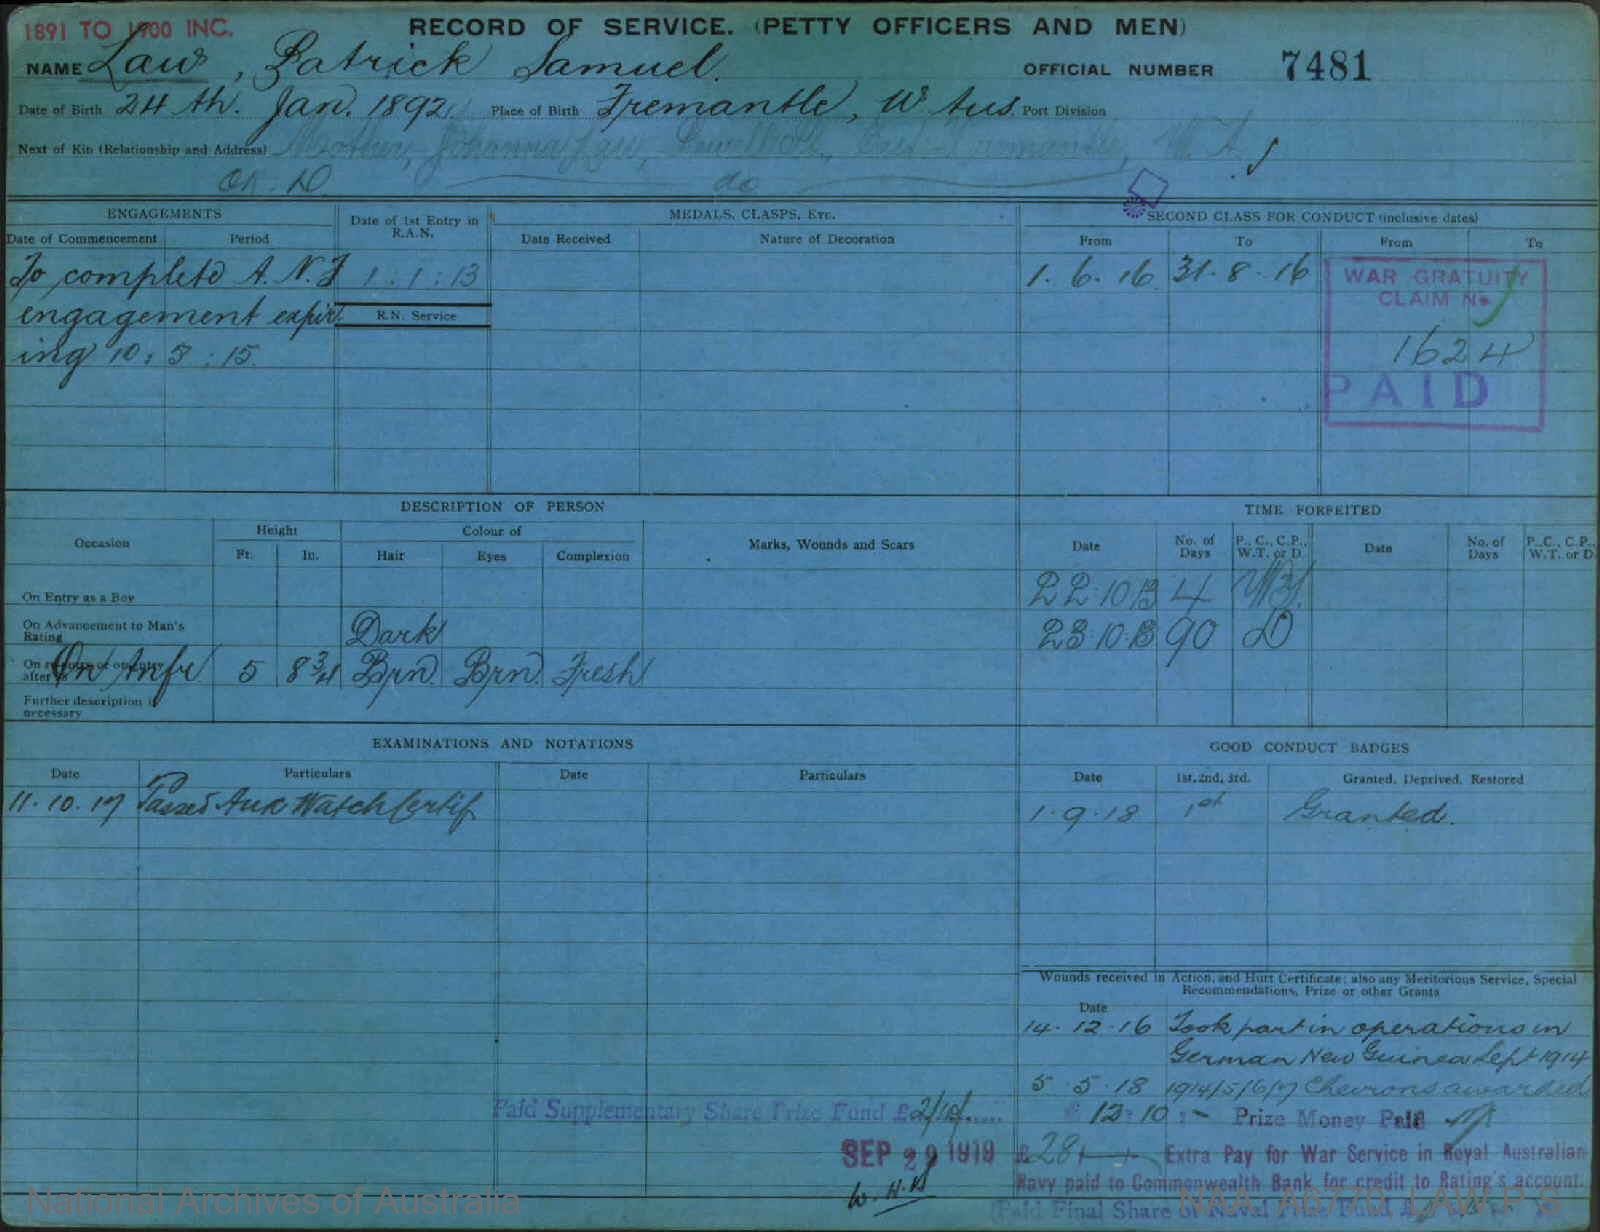 1891 TO 1900 INC.
RECORD OF SERVICE. (PETTY OFFICERS AND MEN)
NAME Law, Patrick Samuel. OFFICIAL NUMBER 7481
Date of Birth 24th. Jan. 1892 Place of Birth Fremantle, W Aus. Port Division
Next of Kin (Relationship and Address) Mother, Johanna Law, East Fremantle, W.A.
do
ENGAGEMENTS
Date of Commencement Period
Date of 1st Entry in R.A.N.
MEDALS, CLASPS, Etc.
Date Received Nature of Decoration
SECOND CLASS FOR CONDUCT (inclusive dates)
From To From To
To complete A.N.F 1:1:13
1.6.16 31.8.16
engagement expir R.N. Service
ing 10:3:15.
WAR GRATUITY
CLAIM No.
1624
PAID
DESCRIPTION OF PERSON
Occasion Height Colour of Marks, Wounds and Scars
Ft. In. Hair Eyes Complexion
On Entry as a Boy
On Advancement to Man's Rating
Dark
On Tnfr 5 8¾ Brn Brn Fresh
Further description if necessary
TIME FORFEITED
Date No. of Days P., C., C.P., W.T. or D. Date No. of Days P., C., C.P., W.T. or D.
22.10.13 4
23.10.13 90 D
EXAMINATIONS AND NOTATIONS
Date Particulars Date Particulars
11.10.17 Passed Aux Watch Certif
GOOD CONDUCT BADGES
Date 1st, 2nd, 3rd. Granted, Deprived, Restored
1.9.18 1st Granted.
Wounds received in Action, and Hurt Certificate; also any Meritorious Service, Special
Recommendations, Prize or other Grants
Date
14.12.16 Took part in operations in
German New Guinea Sept 1914
5.5.18 1914/5/6/7 Chevrons awarded
Paid Supplementary Share Prize Fund £2/10/
£12:10:- Prize Money Paid
SEP 29 1919
W.H.B
£28 Extra Pay for War Service in Royal Australian
Navy paid to Commonwealth Bank for credit to Rating's account.
(Paid Final Share of Naval Prize Fund £
National Archives of Australia
NAA: A6770, LAW P S